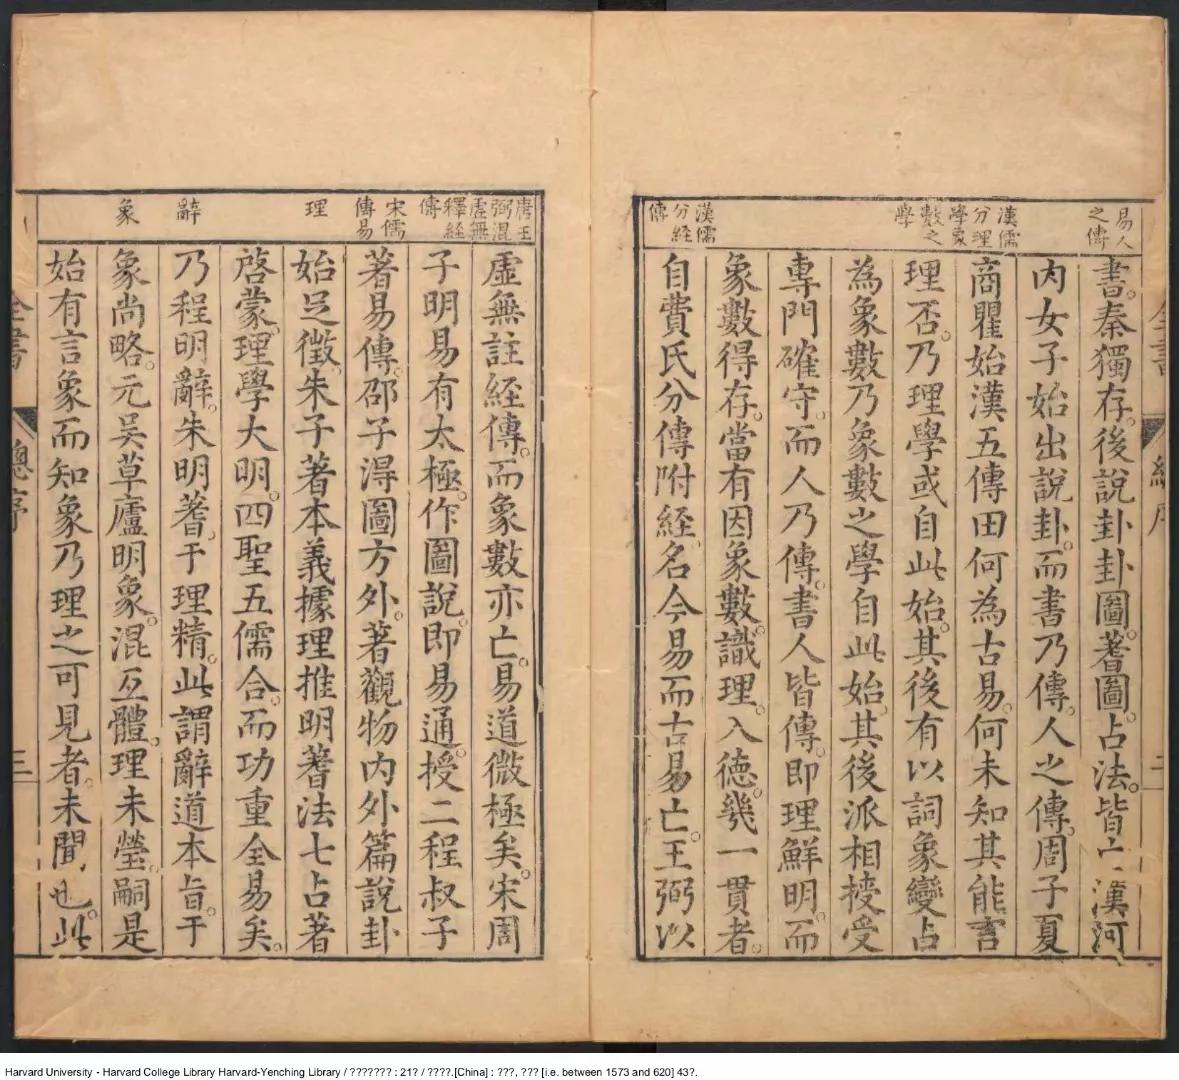 易人
之傳
漢儒
分理
學象
數之
學
漢儒
分經
傳
書秦獨存後說卦卦圖蓍圖占法皆亡漢河
內女子始出說卦而書乃傳人之傳周子夏
商瞿始漢五傳田何為古易何未知其能言
理否乃理學或自此始其後有以詞象變占
為象數乃象數之學自此始其後派相授受
專門確守而人乃傳書人皆傳即理鮮明而
象數得存當有因象數識理入德幾一貫者
自費氏分傳附經名今易而古易亡王弼以
全書
總序
二
唐王
弼混
虛無
釋經
傳
宋儒
傳易
理
辭
象
虛無註經傳而象數亦亡易道微極矣宋周
子明易有太極作圖說即易通授二程叔子
著易傳邵子得圖方外著觀物內外篇說卦
始足徵朱子著本義據理推明蓍法七占著
啓蒙理學大明四聖五儒合而功重全易矣
乃程明辭朱明蓍于理精此謂辭道本旨于
象尚略元吳草廬明象混互體理未瑩嗣是
始有言象而知象乃理之可見者未聞也此
全書
總序
三
Harvard University - Harvard College Library Harvard-Yenching Library / ??????? : 21? / ????.[China] : ???, ??? [i.e. between 1573 and 620] 43?.